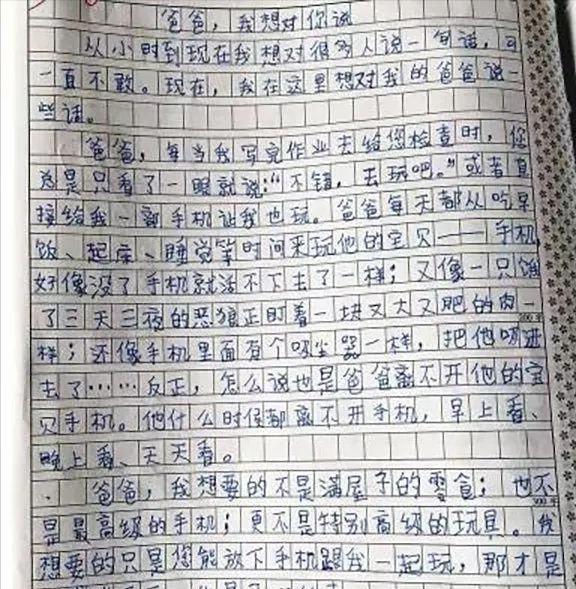 爸爸，我想对你说
从小时到现在我想对很多人说一句话，可
一直不敢。现在，我在这里想对我的爸爸说一
些话。
爸爸，每当我写完作业去给您检查时，您
总是只看了一眼就说："不错，去玩吧。"或者直
接给我一部手机让我也玩。爸爸每天都从吃早
饭、起床、睡觉等时间来玩他的宝贝——手机
好像没了手机就活不下去了一样；又像一只饿
了三天三夜的恶狼正盯着一块又大又肥的肉一
样；还像手机里面有个吸尘器一样，把他吸进
去了……反正，怎么说也是爸爸离不开他的宝
贝手机。他什么时候都离不开手机，早上看、
晚上看、天天看。
爸爸，我想要的不是满屋子的零食；也不
是最高级的手机；更不是特别高级的玩具。我
想要的只是您能放下手机跟我一起玩，那才是